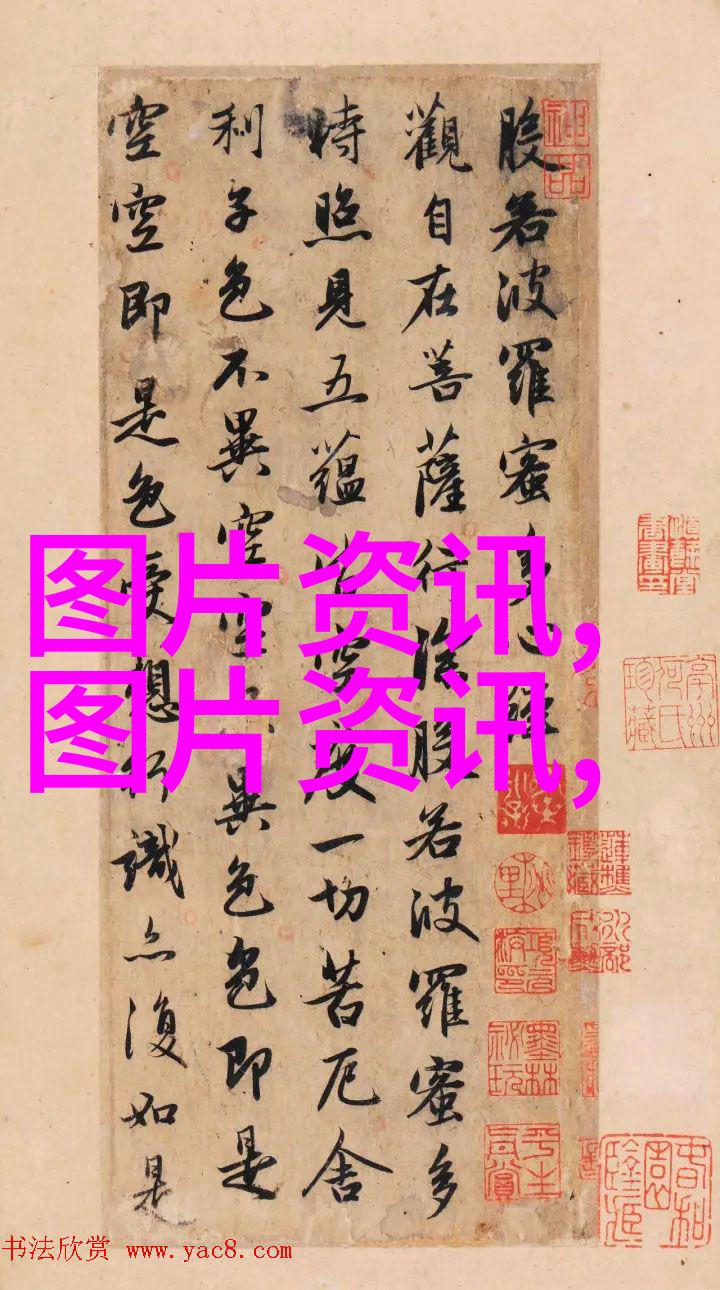 般若波羅蜜多心經
觀自在菩薩行深般若波羅蜜多
時照見五蘊皆空度一切苦厄舍
利子色不異空空不異色色即是
空空即是色受想行識亦復如是
图片资讯,
图片资讯,
神品
墨林祕玩
书法欣赏 www.yac8.com